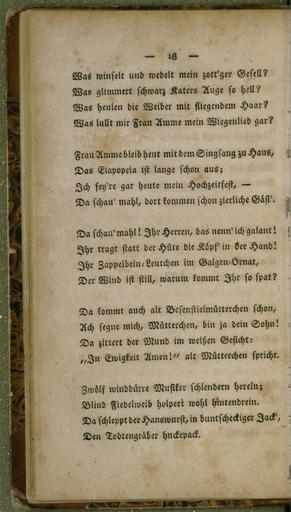 — 18 —
Was winselt und wedelt mein zott'ger Gesell?
Was glimmert schwarz Katers Auge so hell?
Was heulen die Weiber mit fliegendem Haar?
Was lullt mir Frau Amme mein Wiegenlied gar?
Frau Amme bleib heut mit dem Singsang zu Haus,
Das Eiapopeia ist lange schon aus;
Ich fey're gar heute mein Hochzeitfest, —
Da schau' mahl, dort kommen schon zierliche Gäst'.
Da schau' mahl! Ihr Herren, das nenn' ich galant!
Ihr tragt statt der Hüte die Köpf' in der Hand!
Ihr Zappelbein-Leutchen im Galgen-Ornat,
Der Wind ist still, warum kommt Ihr so spat?
Da kommt auch alt Besenstielmütterchen schon,
Ach segne mich, Mütterchen, bin ja dein Sohn!
Da zittert der Mund im weißen Gesicht:
„In Ewigkeit Amen!" alt Mütterchen spricht.
Zwölf winddürre Musiker schlendern herein;
Blind Fiedelweib holpert wohl hintendrein.
Da schleppt der Hanswurst, in buntscheckiger Jack',
Den Todtengräber huckepack.